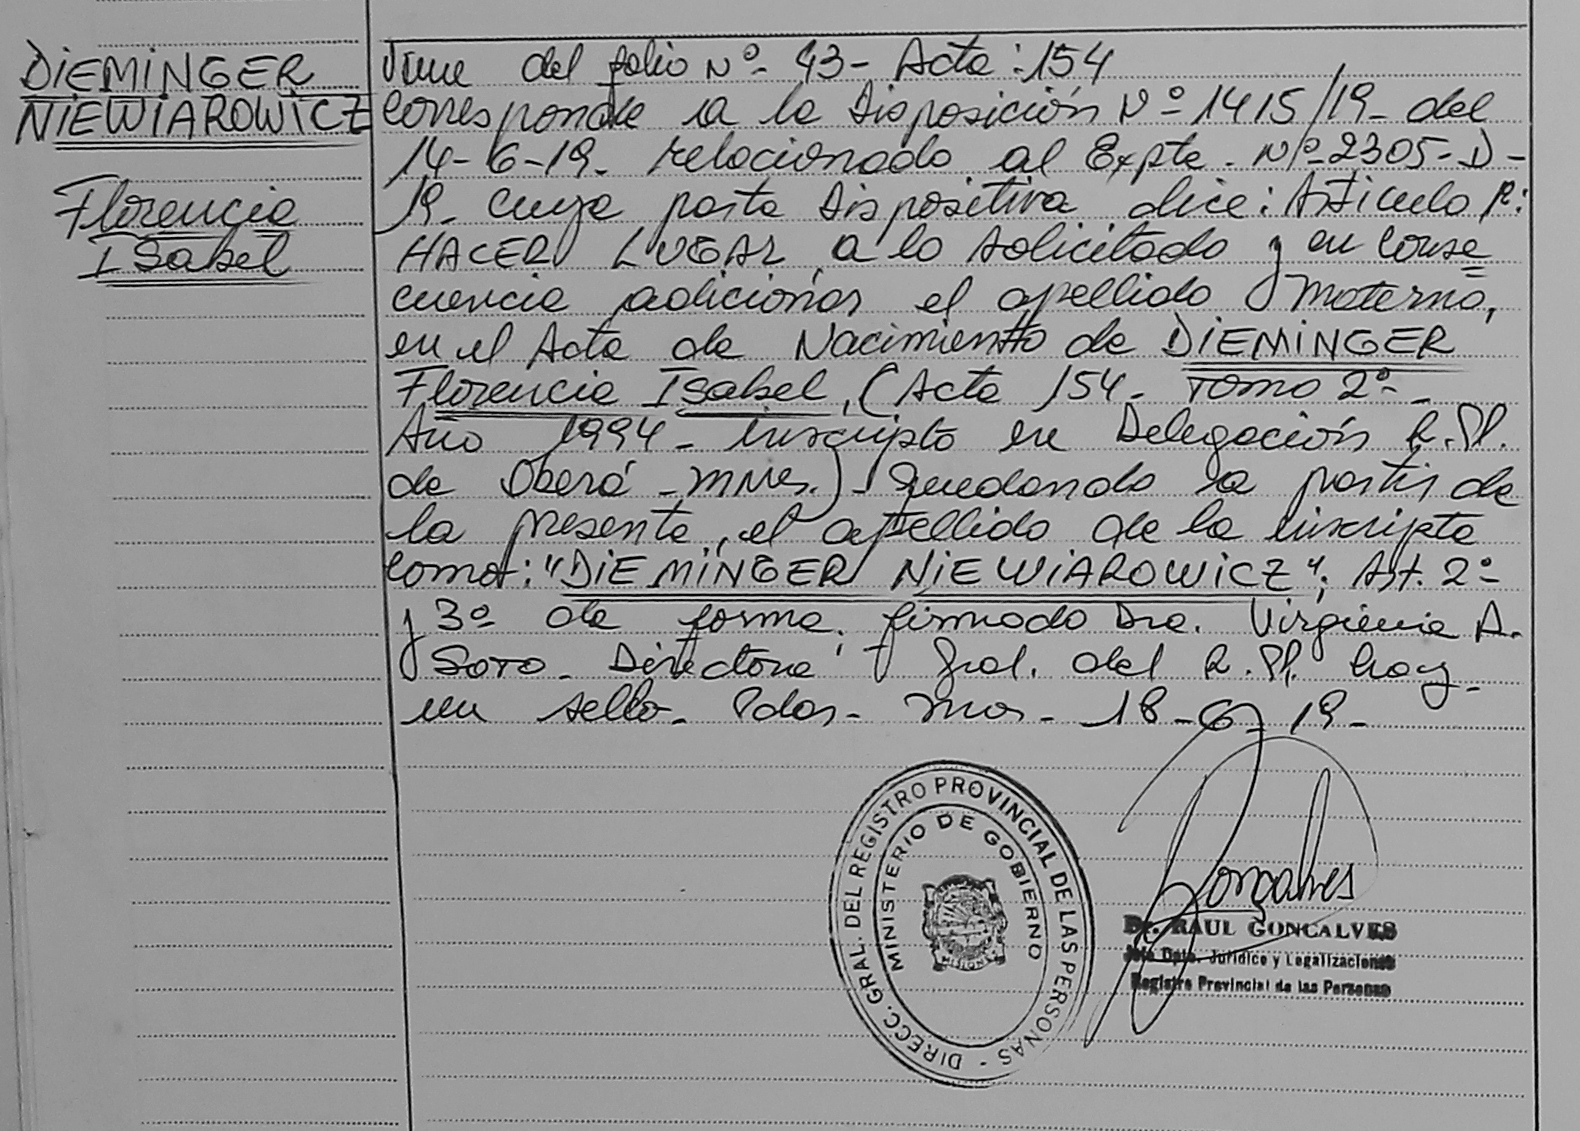 DIEMINGER
NIEWIAROWICZ
Florencia
ISabel
Viene del folio Nº- 43- Acta: 154
Corresponde a la Disposición Nº 1415/19- del
14-6-19- relacionado al Expte. Nº-2305-D-
19- cuya parte dispositiva dice: Artículo 1º:
HACER LUGAR a lo solicitado y en conse
cuencia adicionar el apellido materno,
en el Acta de Nacimiento de DIEMINGER
Florencia Isabel, (Acta 154- Tomo 2º-
Año 1994- Inscripto en Delegación R.P.
de Oberá -Mnes.)- Quedando a partir de
la presente, el apellido de la inscripta
como: "DIEMINGER NIEWIAROWICZ"; Art. 2º
y 3º de forma. firmado Dra. Virginia A.
SOTO- Directora Gral. del R.P. hay
un sello- Pdas- Mnes- 18-6-19-
DIRECC. GRAL. DEL REGISTRO PROVINCIAL DE LAS PERSONAS -
MINISTERIO DE GOBIERNO
MISIONES
Goncalves
Dr. RAUL GONCALVES
Jefe Dpto. Jurídico y Legalizaciones
Registro Provincial de las Personas